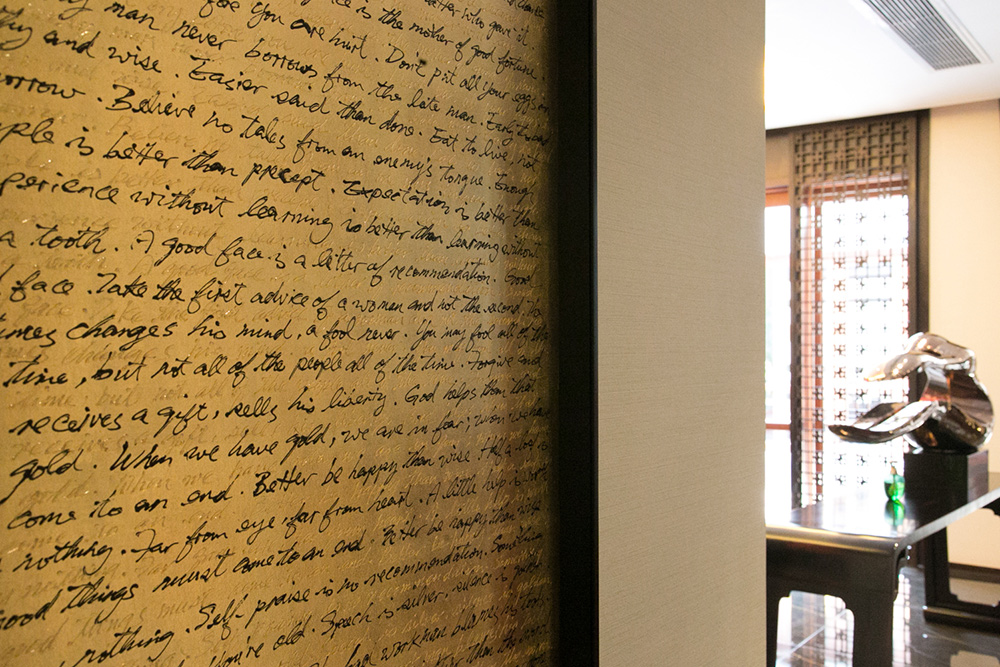 who gave it.
is the mother of good fortune.
man never you are hurt. Don't put all your eggs
and wise. borrows from the late man. Early
orrow. Easier said than done. Eat to live, not
Believe no tales from an enemy's tongue. Enough
ple is better than precept. Expectation is better than
perience without learning is better than learning without
a tooth. A good face is a letter of recommendation. Good
face. Take the first advice of a woman and not the second.
imes changes his mind, a fool never. You may fool all of the
time, but not all of the people all of the time. Forgive and
receives a gift, sells his liberty. God helps them that
gold. When we have gold, we are in fear; we have
come to an end. Better be happy than wise. Half a loaf is
nothing. Far from eye, far from heart. A little help is
good things must come to an end. Better be happy than wise
nothing. Self-praise is no recommendation. Sometimes
you're old. Speech is silver, silence is
bad workman blames